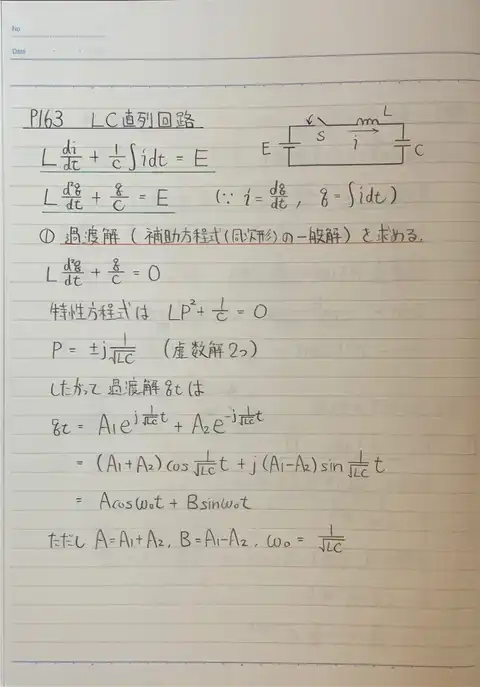 No
Date
P163 LC直列回路
S
L
E
i
C
L di/dt + 1/C ∫idt = E
L d²q/dt + q/C = E (∵ i = dq/dt, q = ∫idt)
① 過渡解(補助方程式(同次形)の一般解)を求める.
L d²q/dt + q/C = 0
特性方程式は LP² + 1/C = 0
P = ±j 1/√LC (虚数解2つ)
したがって過渡解qtは
qt = A₁e^{j 1/√LC t} + A₂e^{-j 1/√LC t}
= (A₁+A₂)cos 1/√LC t + j(A₁-A₂)sin 1/√LC t
= Acosω₀t + Bsinω₀t
ただし A=A₁+A₂, B=A₁-A₂, ω₀ = 1/√LC